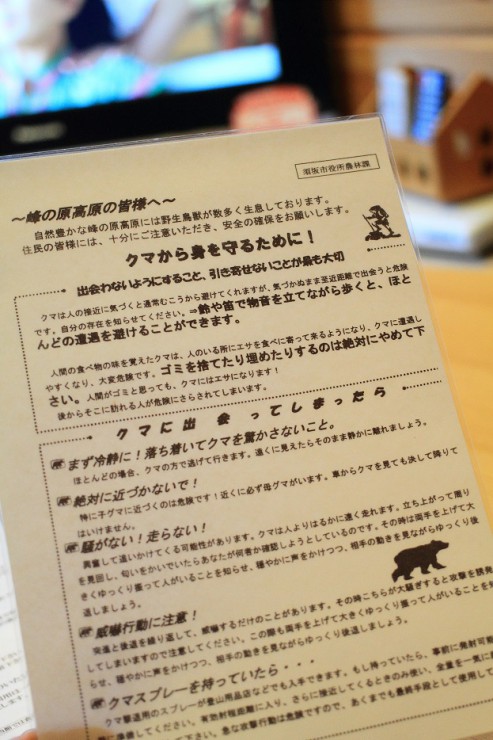 須坂市役所農林課
～峰の原高原の皆様へ～
自然豊かな峰の原高原には野生鳥獣が数多く生息しております。
住民の皆様には、十分にご注意いただき、安全の確保をお願いします。
クマから身を守るために！
出会わないようにすること、引き寄せないことが最も大切
クマは人の接近に気づくと通常むこうから避けてくれますが、気づかぬまま至近距離で出会うと危険
です。自分の存在を知らせてください。⇒鈴や笛で物音を立てながら歩くと、ほと
んどの遭遇を避けることができます。
人間の食べ物の味を覚えたクマは、人のいる所にエサを食べに寄って来るようになり、クマに遭遇し
やすくなり、大変危険です。ゴミを捨てたり埋めたりするのは絶対にやめて下
さい。人間がゴミと思っても、クマにはエサになります！
後からそこに訪れる人が危険にさらされてしまいます。
クマに出会ってしまったら
まず冷静に！落ち着いてクマを驚かさないこと。
ほとんどの場合、クマの方で逃げて行きます。遠くに見えたらそのまま静かに離れましょう。
絶対に近づかないで！
特に子グマに近づくのは危険です！近くに必ず母グマがいます。車からクマを見ても決して降りて
はいけません。
騒がない！走らない！
興奮して追いかけてくる可能性があります。クマは人よりはるかに速く走れます。立ち上がって周り
を見回し、匂いをかいでいたらあなたが何者か確認しようとしているのです。その時は両手を上げて大
きくゆっくり振って人がいることを知らせ、穏やかに声をかけつつ、相手の動きを見ながらゆっくり後
退しましょう。
威嚇行動に注意！
突進と後退を繰り返して、威嚇するだけのことがあります。その時こちらが大騒ぎすると攻撃を誘発
してしまいますので注意してください。この際も両手を上げて大きくゆっくり振って人がいることを知
らせ、穏やかに声をかけつつ、相手の動きを見ながらゆっくり後退しましょう。
クマスプレーを持っていたら・・・
クマ撃退用のスプレーが登山用品店などでも入手できます。もし持っていたら、事前に発射可能
に準備してください。有効射程距離に入り、さらに接近してくるときのみ使い、全量を一気に
てください。急な攻撃行動は危険ですので、あくまでも最終手段として使用して